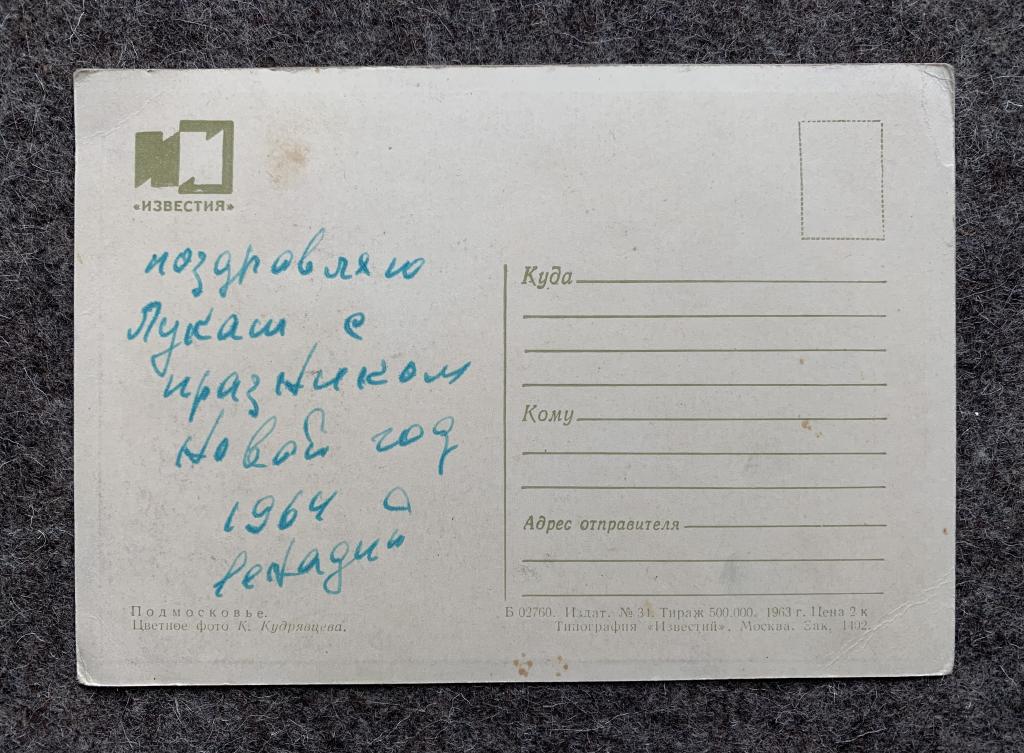 «ИЗВЕСТИЯ»
поздровляю
Лукаш с
празником
Новой год
1964
Генадий
Подмосковье.
Цветное фото К. Кудрявцева.
Куда
Кому
Адрес отправителя
Б 02760. Издат. № 31. Тираж 500.000. 1963 г. Цена 2 к
Типография «Известий». Москва. Зак. 1492.